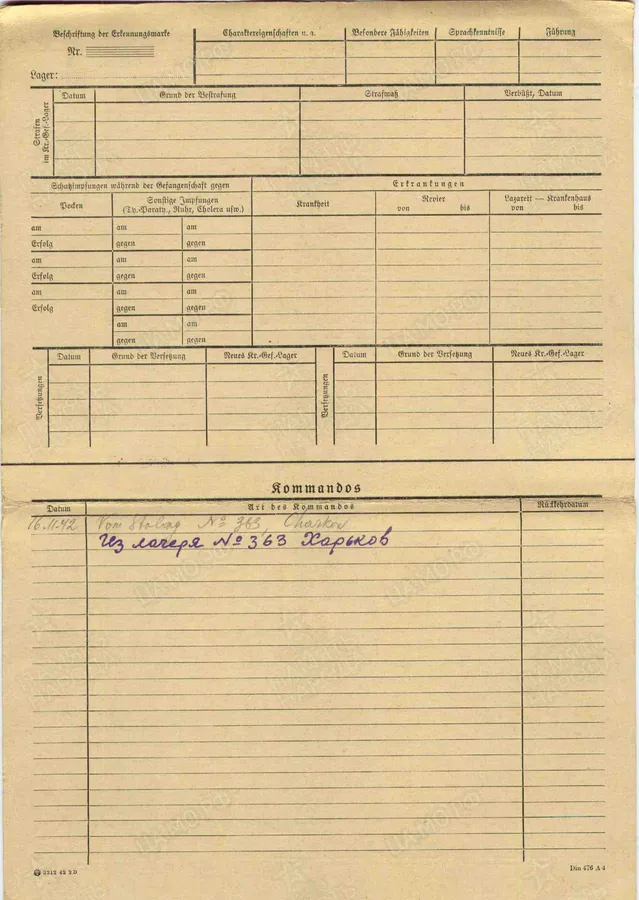 Beschriftung der Erkennungsmarke
Nr.
Lager:
Charaktereigenschaften u. a.
Besondere Fähigkeiten
Sprachkenntnisse
Führung
Strafen
im Kr.-Gef.-Lager
Datum
Grund der Bestrafung
Strafmaß
Verbüßt, Datum
Schutzimpfungen während der Gefangenschaft gegen
Erkrankungen
Pocken
Sonstige Impfungen
(Ty.-Paraty., Ruhr, Cholera usw.)
Krankheit
Revier
von bis
Lazarett — Krankenhaus
von bis
am am am
Erfolg gegen gegen
am am am
Erfolg gegen gegen
am am am
Erfolg gegen gegen
am am
gegen gegen
Versetzungen
Datum
Grund der Versetzung
Neues Kr.-Gef.-Lager
Versetzungen
Datum
Grund der Versetzung
Neues Kr.-Gef.-Lager
Kommandos
Datum
Art des Kommandos
Rückkehrdatum
16.11.42 Vom Stalag № 363, Charkow
Из лагеря № 363 Харьков
3312 42 2D
Din 476 A 4
ЦАМО РФ